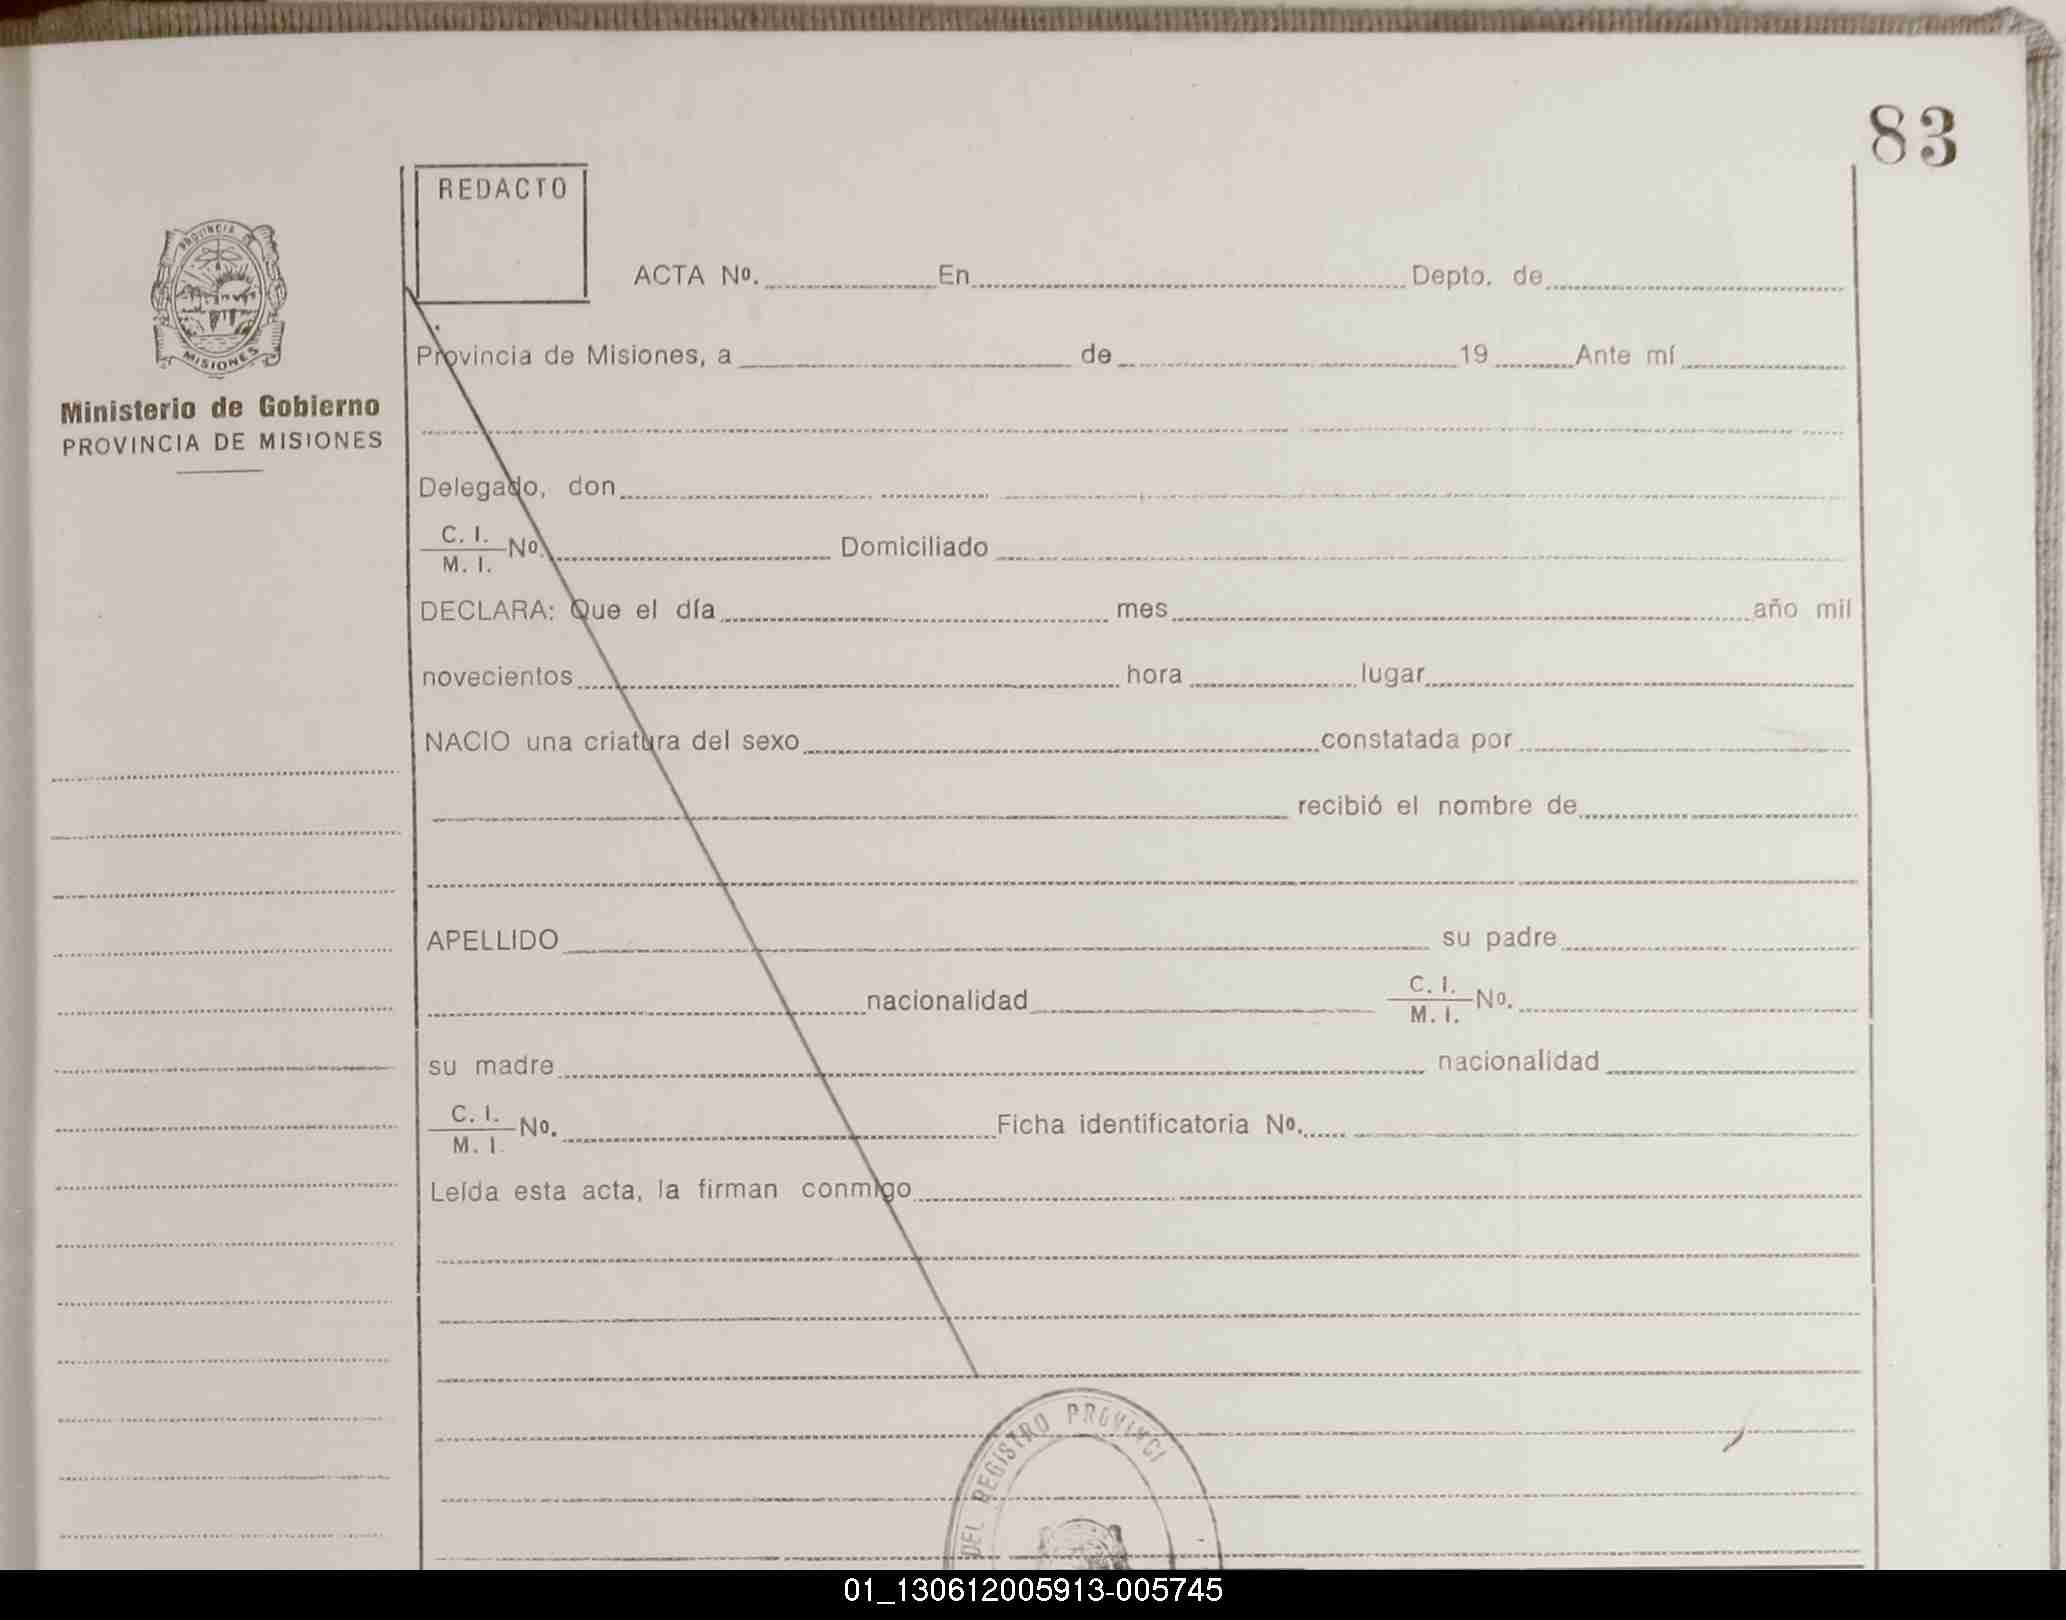 83
REDACTO
PROVINCIA DE
MISIONES
Ministerio de Gobierno
PROVINCIA DE MISIONES
ACTA Nº. En Depto. de
Provincia de Misiones, a de 19 Ante mí
Delegado, don
C. I.
M. I. Nº. Domiciliado
DECLARA: Que el día mes año mil
novecientos hora lugar
NACIO una criatura del sexo constatada por
recibió el nombre de
APELLIDO su padre
nacionalidad C. I.
M. I. Nº.
su madre nacionalidad
C. I.
M. I. Nº. Ficha identificatoria Nº.
Leída esta acta, la firman conmigo
DEL REGISTRO PROVINCI
01_130612005913-005745